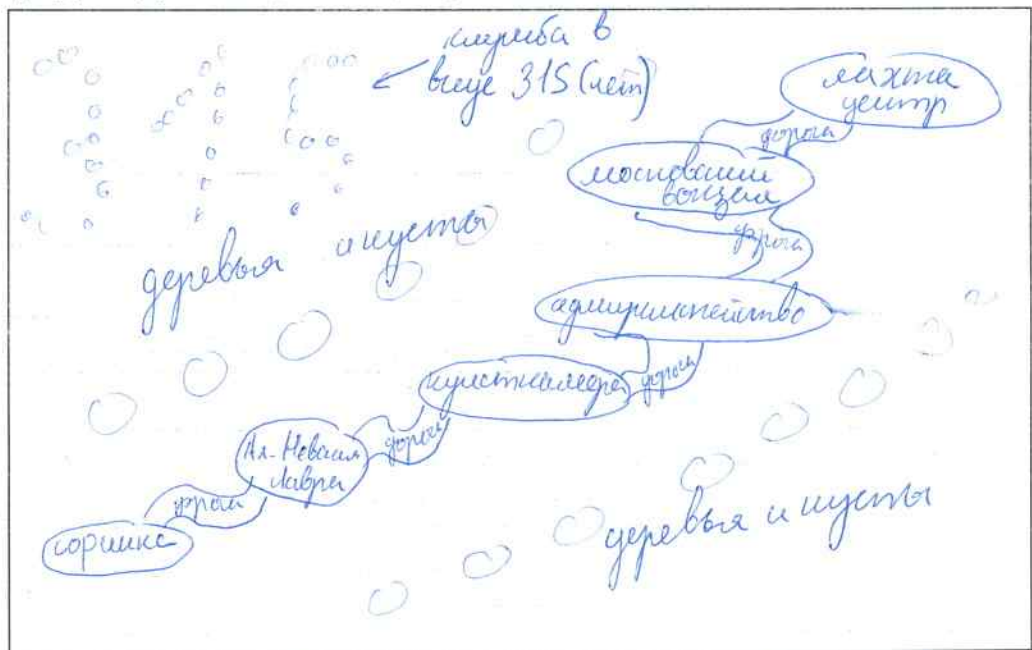 клумба в
виде 315 (лет)
лахта
центр
дорога
московский
вокзал
дорога
деревья и кусты
адмиралтейство
кунсткамера
дорога
Ал. Невская
Лавра
дорога
дорога
горшка
деревья и кусты